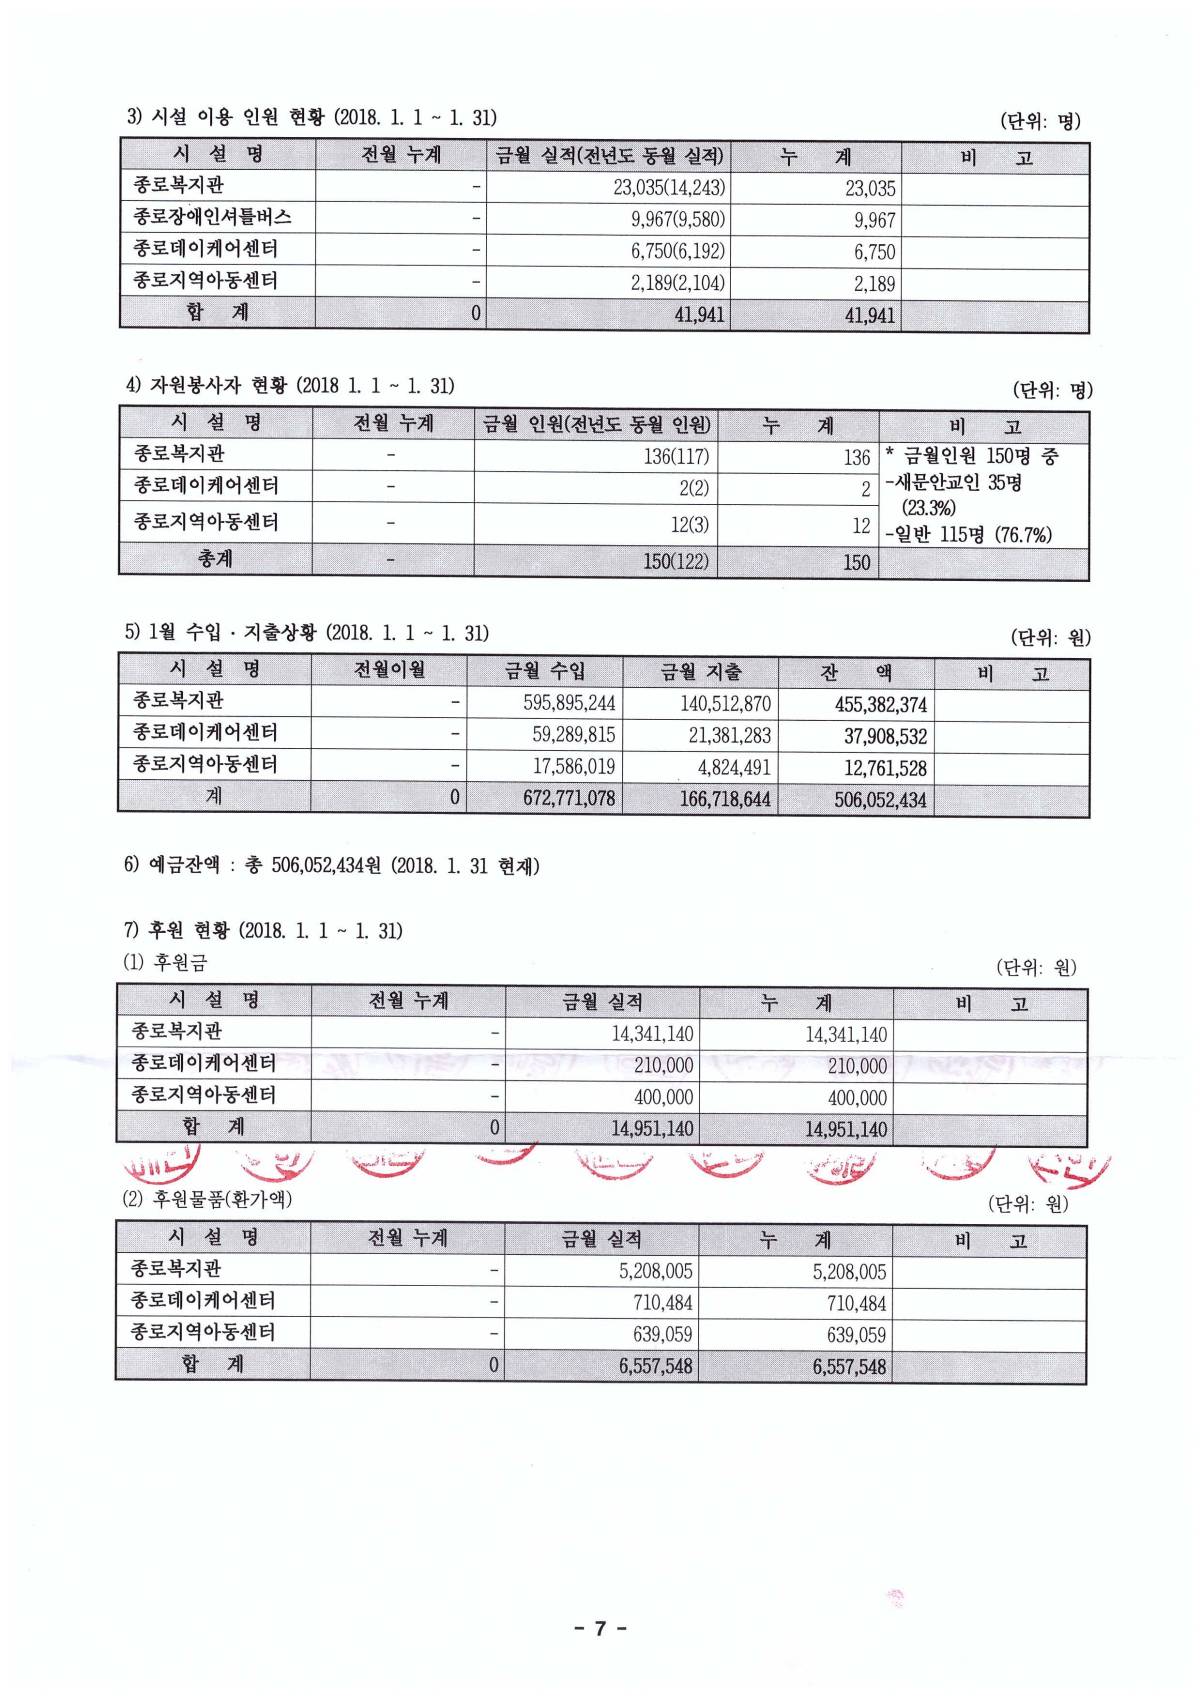 3) 시설 이용 인원 현황 (2018. 1. 1 ~ 1. 31) (단위: 명)
시 설 명 전월 누계 금월 실적(전년도 동월 실적) 누 계 비 고
종로복지관 - 23,035(14,243) 23,035
종로장애인셔틀버스 - 9,967(9,580) 9,967
종로데이케어센터 - 6,750(6,192) 6,750
종로지역아동센터 - 2,189(2,104) 2,189
합 계 0 41,941 41,941
4) 자원봉사자 현황 (2018 1. 1 ~ 1. 31) (단위: 명)
시 설 명 전월 누계 금월 인원(전년도 동월 인원) 누 계 비 고
종로복지관 - 136(117) 136 * 금월인원 150명 중
종로데이케어센터 - 2(2) 2 -새문안교인 35명
(23.3%)
종로지역아동센터 - 12(3) 12 -일반 115명 (76.7%)
총계 - 150(122) 150
5) 1월 수입 · 지출상황 (2018. 1. 1 ~ 1. 31) (단위: 원)
시 설 명 전월이월 금월 수입 금월 지출 잔 액 비 고
종로복지관 - 595,895,244 140,512,870 455,382,374
종로데이케어센터 - 59,289,815 21,381,283 37,908,532
종로지역아동센터 - 17,586,019 4,824,491 12,761,528
계 0 672,771,078 166,718,644 506,052,434
6) 예금잔액 : 총 506,052,434원 (2018. 1. 31 현재)
7) 후원 현황 (2018. 1. 1 ~ 1. 31)
(1) 후원금 (단위: 원)
시 설 명 전월 누계 금월 실적 누 계 비 고
종로복지관 - 14,341,140 14,341,140
종로데이케어센터 - 210,000 210,000
종로지역아동센터 - 400,000 400,000
합 계 0 14,951,140 14,951,140
(2) 후원물품(환가액) (단위: 원)
시 설 명 전월 누계 금월 실적 누 계 비 고
종로복지관 - 5,208,005 5,208,005
종로데이케어센터 - 710,484 710,484
종로지역아동센터 - 639,059 639,059
합 계 0 6,557,548 6,557,548
- 7 -